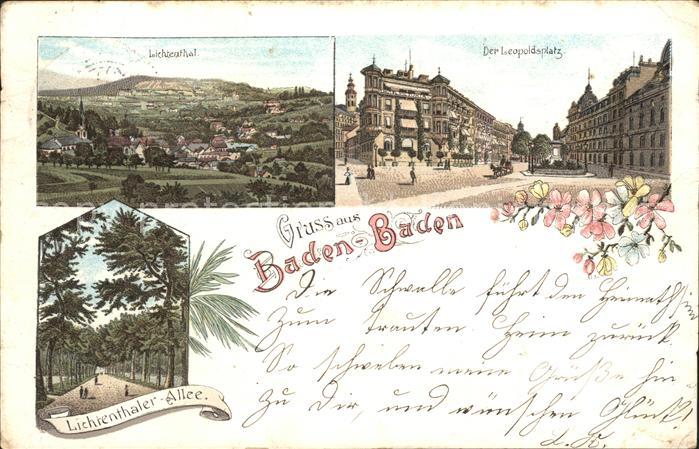 Lichenthal.
Der Leopoldsplatz
Gruss aus
Baden-Baden
Lichtenthaler-Allee.
Die Schwalbe führt den Heimathsinn
Zum trauten Heim zurück.
So schweben meine Grüße hin
Zu Dir, und wünschen Glück!